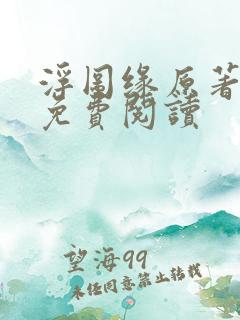 浮图缘原著
免費閱讀
望海99
未任同意禁止转载